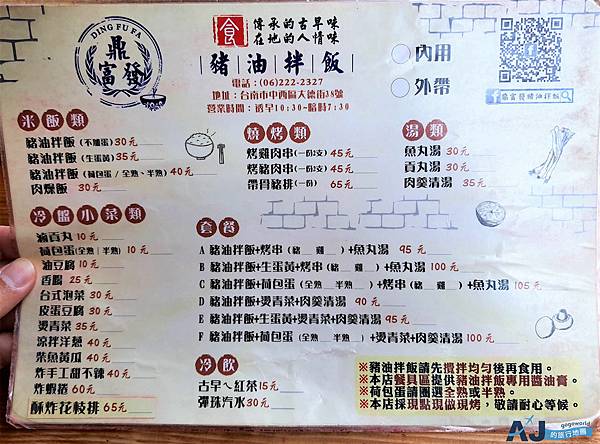 DING FU FA
鼎富發
食
傳承的古早味
在地的人情味
豬油拌飯
電話:(06)222-2327
地址:台南市中西區大德街38號
營業時間:透早10:30~暗時7:30
內用
外帶
鼎富發豬油拌飯
米飯類
豬油拌飯 (不加蛋) 30元
豬油拌飯 (生蛋黃) 35元
豬油拌飯 (荷包蛋/全熟、半熟) 40元
肉燥飯 30元
燒烤類
烤雞肉串(一份2支) 45元
烤豬肉串(一份2支) 45元
帶骨豬排(一份) 65元
湯類
魚丸湯 30元
貢丸湯 30元
肉羹清湯 35元
冷盤小菜類
滷貢丸 10元
荷包蛋(全熟|半熟) 10元
油豆腐 10元
香腸 25元
台式泡菜 30元
皮蛋豆腐 30元
燙青菜 35元
涼拌洋蔥 40元
柴魚黃瓜 40元
炸手工甜不辣 40元
炸蝦捲 60元
酥炸花枝排 65元
套餐
A 豬油拌飯+烤串 (豬__雞__) +魚丸湯 95元
B 豬油拌飯+生蛋黃+烤串 (豬__雞__) +魚丸湯 100元
C 豬油拌飯+荷包蛋 (全熟__半熟__) +烤串 (豬__雞__) +魚丸湯 105元
D 豬油拌飯+燙青菜+肉羹清湯 90元
E 豬油拌飯+生蛋黃+燙青菜+肉羹清湯 95元
F 豬油拌飯+荷包蛋 (全熟__半熟__) +燙青菜+肉羹清湯 100元
冷飲
古早ㄟ紅茶 15元
彈珠汽水 30元
※豬油拌飯請先攪拌均勻後再食用。
※本店餐具區提供豬油拌飯專用醬油膏。
※荷包蛋請圈選全熟或半熟。
※本店採現點現做現烤,敬請耐心等候。
gogoworld
AJ的旅行地圖